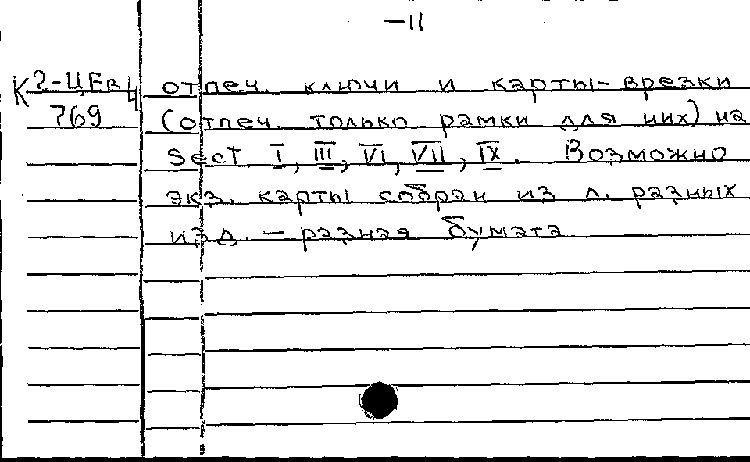 -11
К 2-ЦЕв 4
769
отпеч. ключи и карты-врезки
(отпеч. только рамки для них) на
Sect I, III, VI, VII, IX. Возможно
экз. карты собран из л. разных
изд. - разная бумага